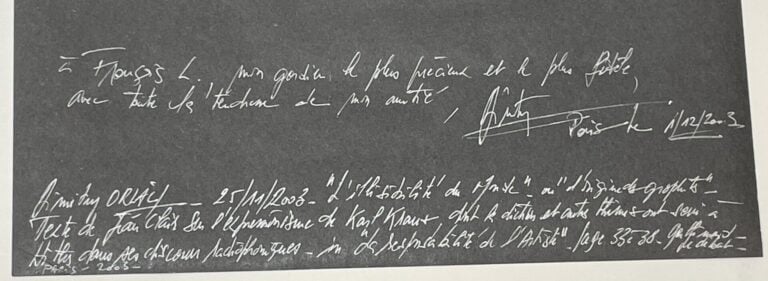 à François L. mon gardien le plus précieux et le plus fidèle,
avec toute la tendresse de mon amitié, Dimitry
Paris le 1/12/2003
Dimitry ORLAC 25/11/2003 - "L'illisibilité du Monde" ou "l'origine des graphits" -
Texte de Jean Clair sur l'expressionnisme de Karl Kraus dont le diction et autres thèmes ont servi à
Hitler dans ses discours radiophoniques - in "La Responsabilité de l'Artiste" - page 35 à 38 -
PARIS - 2003 -